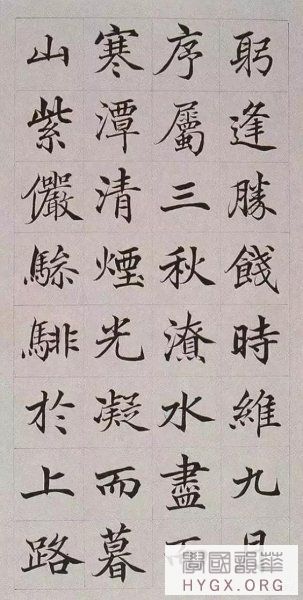 躬逢勝餞時維九月
序屬三秋潦水盡而
寒潭清煙光凝而暮
山紫儼驂騑於上路
華韻國學
HYGX.ORG